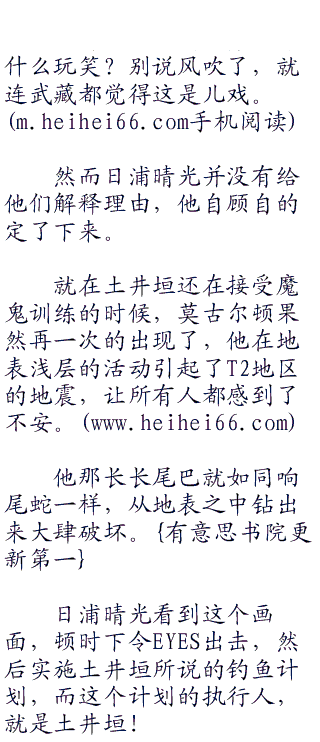 什么玩笑？别说风吹了，就
连武藏都觉得这是儿戏。
(m.heihei66.com手机阅读)
然而日浦晴光并没有给
他们解释理由，他自顾自的
定了下来。
就在土井垣还在接受魔
鬼训练的时候，莫古尔顿果
然再一次的出现了，他在地
表浅层的活动引起了T2地区
的地震，让所有人都感到了
不安。(www.heihei66.com)
他那长长尾巴就如同响
尾蛇一样，从地表之中钻出
来大肆破坏。{有意思书院更
新第一}
日浦晴光看到这个画
面，顿时下令EYES出击，然
后实施土井垣所说的钓鱼计
划，而这个计划的执行人，
就是土井垣！